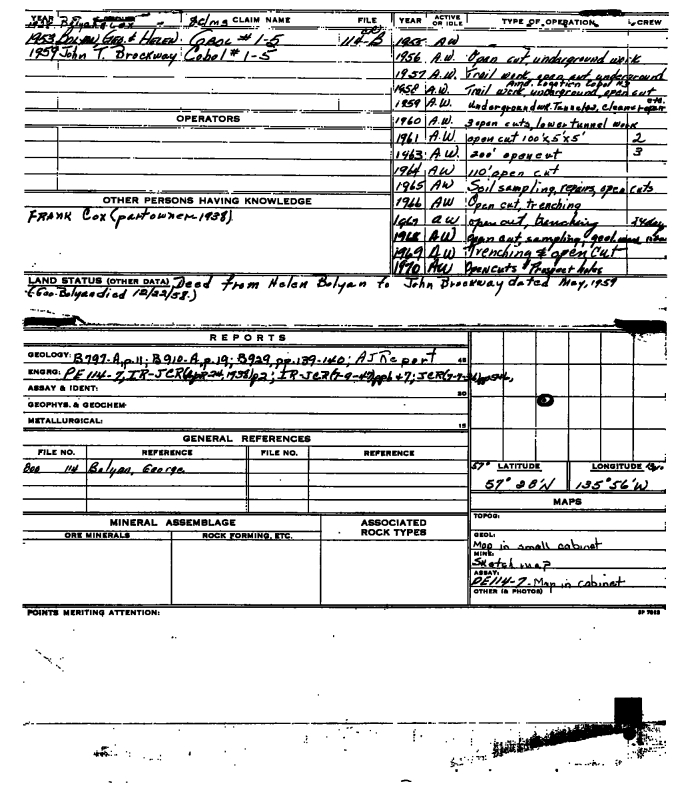 YEAR CLAIM NAME FILE
1938 Bolyan & Cox 8 clms
1953 BOLYAN GEO. & HELEN. COBOL # 1-5 114-B
1959 John T. Brockway Cobol # 1-5
OPERATORS
OTHER PERSONS HAVING KNOWLEDGE
FRANK Cox (part owner 1938)
YEAR ACTIVE OR IDLE TYPE OF OPERATION CREW
1955 AW
1956 A.W. Open cut, underground work
1957 A.W. Trail work, open cut, underground
Amd. Location Cobol #3
1958 A.W. Trail work, underground, open cut
1959 A.W. Underground wk. Tunnels, clean & open etc.
1960 A.W. 3 open cuts, lower tunnel work
1961 A.W open cut 100'x5'x5' 2
1963 A.W. 200' open cut 3
1964 AW 110' open cut
1965 AW Soil sampling, repairs, open cuts
1966 AW Open cut, trenching
1967 AW open cut, trenching 24 day
1968 AW open cut, sampling, geol.
1969 AW Trenching & open Cut
1970 AW Open Cuts & Prospect holes
LAND STATUS (OTHER DATA) Deed from Helen Bolyan to John Brockway dated May, 1959
(Geo. Bolyan died 12/22/58.)
REPORTS
GEOLOGY: B797-A, p.11; B910-A, p.19; B929, pp.139-140; AJ Report 45
ENGRG: PE 114-7, IR-JCR(Apr 24, 1938)p2; IR-JCR(7-9-47)pp6+7; JCR
ASSAY & IDENT: 30
GEOPHYS. & GEOCHEM
METALLURGICAL: 15
GENERAL REFERENCES
FILE NO. REFERENCE FILE NO. REFERENCE
114 Bolyan, George
57° LATITUDE LONGITUDE
57° 28'N 135° 56'W
MAPS
TOPOG:
GEOL:
Map in small cabinet
MINE:
Sketch map
ASSAY:
PE114-7 - Map in cabinet
OTHER (& PHOTOS)
MINERAL ASSEMBLAGE
ORE MINERALS ROCK FORMING, ETC.
ASSOCIATED ROCK TYPES
POINTS MERITING ATTENTION: